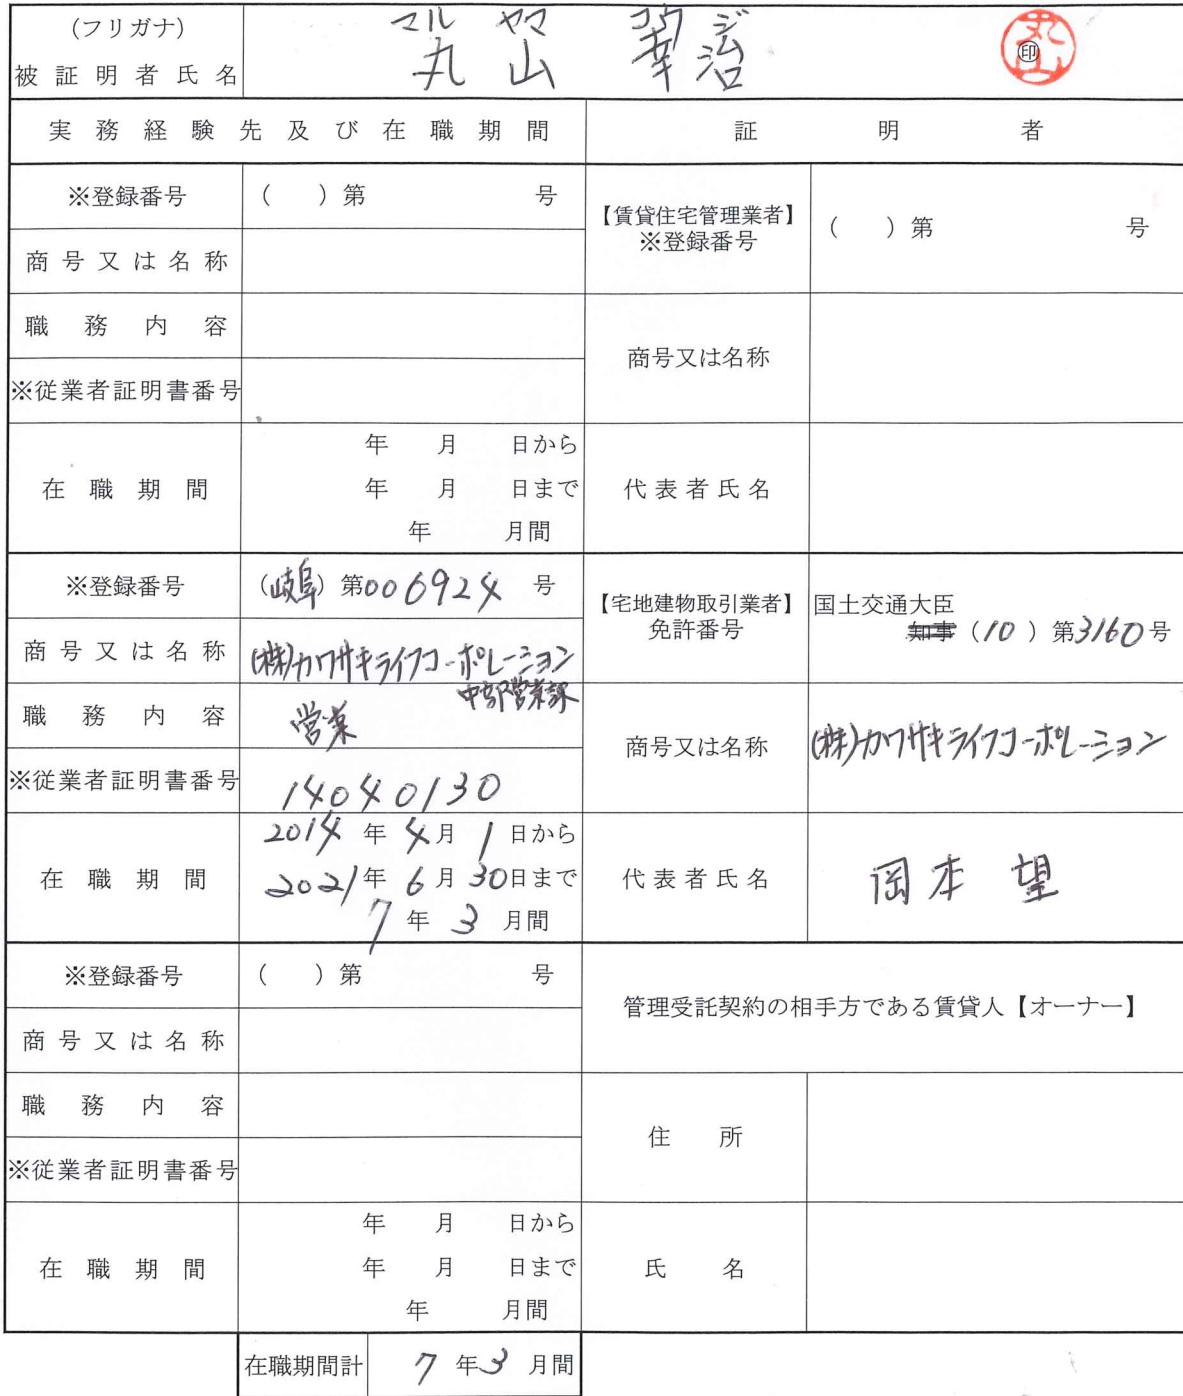 (フリガナ) マル ヤマ コウ ジ
被証明者氏名 丸山 幸治 ㊞ 丸山
実務経験先及び在職期間 証明者
※登録番号 ( )第 号
商号又は名称
職務内容
※従業者証明書番号
在職期間 年 月 日から
年 月 日まで
年 月間
【賃貸住宅管理業者】
※登録番号 ( )第 号
商号又は名称
代表者氏名
※登録番号 (岐阜)第006924号
商号又は名称 (株)カワサキライフコーポレーション
中部営業課
職務内容 営業
※従業者証明書番号 14040130
在職期間 2014年4月1日から
2021年6月30日まで
7年3月間
【宅地建物取引業者】
免許番号 国土交通大臣
知事(10)第3160号
商号又は名称 (株)カワサキライフコーポレーション
代表者氏名 岡本 望
※登録番号 ( )第 号
商号又は名称
職務内容
※従業者証明書番号
在職期間 年 月 日から
年 月 日まで
年 月間
管理受託契約の相手方である賃貸人【オーナー】
住所
氏名
在職期間計 7年3月間